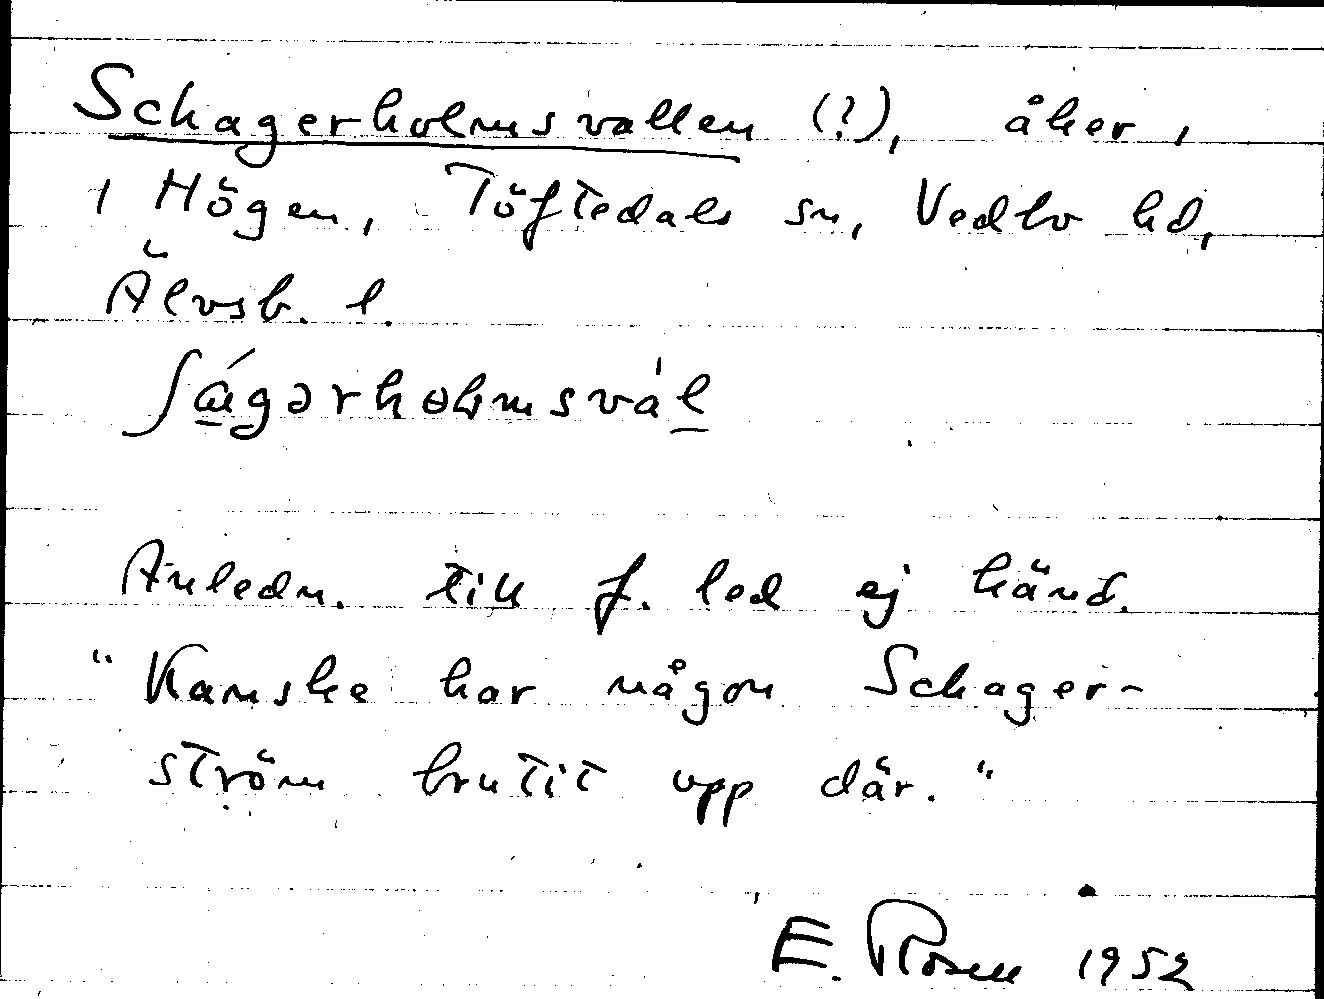 Schagerholmsvallen (?), åker,
i Högen, Töftedals sn, Vedbo hd,
Älvsb. l.
ʃágərholmsvàl
Anledn. till f. led ej känd.
"Kanske har någon Schager-
ström brutit upp där."
E. Rosell 1952